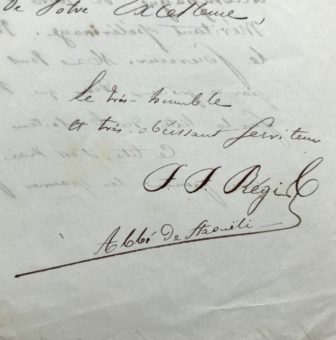 de Votre Excellence,
Le très humble
et très obéissant serviteur
Régis
Abbé de Staouëli